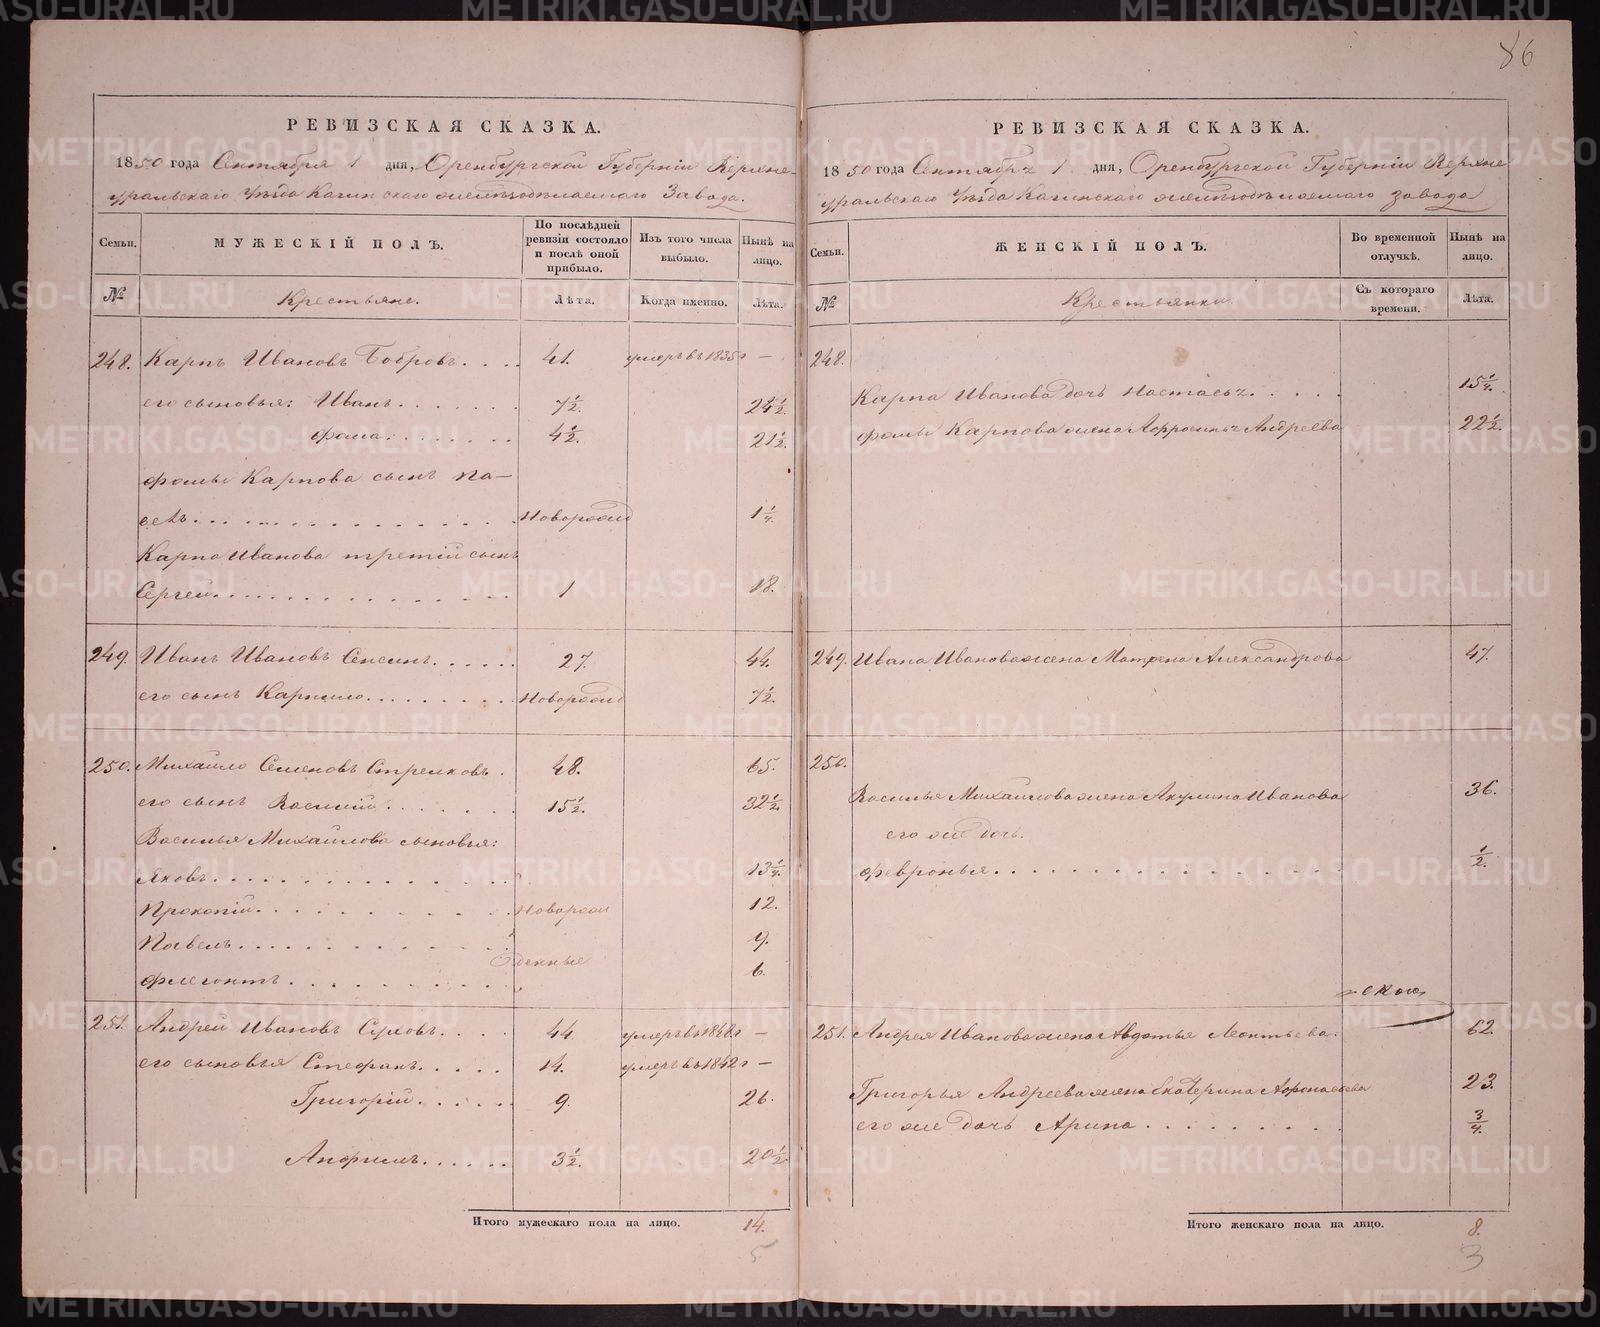 86
РЕВИЗСКАЯ СКАЗКА.
1850 года Сентября 1 дня, Оренбургской Губерніи Верхне-
уральскаго Уѣзда Кагинскаго желѣзодѣлаемаго Завода.
Семьи. МУЖЕСКІЙ ПОЛЪ. По послѣдней ревизіи состояло и послѣ оной прибыло. Изъ того числа выбыло. Нынѣ на лицо.
№ Крестьяне. Лѣта. Когда именно. Лѣта.
248. Карпъ Ивановъ Бобровъ . . . . 41. умеръ въ 1835 г —
его сыновья: Иванъ . . . . . . . 7½. 24½.
Фома . . . . . . . 4½. 21½.
Фомы Карпова сынъ Па-
велъ . . . . . . . . . . . . . Новорожд 1¼.
Карпа Иванова третій сынъ
Сергей . . . . . . . . . . . . 1 18.
249. Иванъ Ивановъ Сенсинъ . . . . . . 27. 44.
его сынъ Карпило . . . . . . . . . Новорожд 7½.
250. Михайло Семеновъ Стрелковъ . 48. 65.
его сынъ Василій . . . . . . . 15½. 32½.
Василья Михайлова сыновья:
Яковъ . . . . . . . . . . . . 13¼.
Прокопій . . . . . . . . . . Новорож 12.
Павелъ . . . . . . . . . . . 9.
денные
Флегонтъ . . . . . . . . . . 6.
251. Андрей Ивановъ Суховъ . . . . 44. умеръ въ 1848 г —
его сыновья Стефанъ . . . . . 14. умеръ въ 1842 г —
Григорій . . . . . . 9. 26.
Анфимъ . . . . . . 3½. 20½.
Итого мужескаго пола на лицо. 14.
5
РЕВИЗСКАЯ СКАЗКА.
1850 года Сентября 1 дня, Оренбургской Губерніи Верхне
уральскаго Уѣзда Кагинскаго желѣзодѣлаемаго завода
Семьи. ЖЕНСКІЙ ПОЛЪ. Во временной отлучкѣ. Нынѣ на лицо.
№ Крестьянки. Съ котораго времени. Лѣта.
248.
Карпа Иванова дочь Настасья . . . . . 15¼.
Фомы Карпова жена Афросинья Андреева 22½.
249. Ивана Иванова жена Матрена Александрова 47.
250.
Василья Михайлова жена Акулина Иванова 36.
его же дочь.
Февронья . . . . . . . . . . . . . . . ½.
251. Андрея Иванова жена Авдотья Леонтьева. 62.
Григорья Андреева жена Екатерина Афонасьева 23.
его же дочь Арина . . . . . . . . . ¾.
Итого женскаго пола на лицо. 8.
3
METRIKI.GASO-URAL.RU